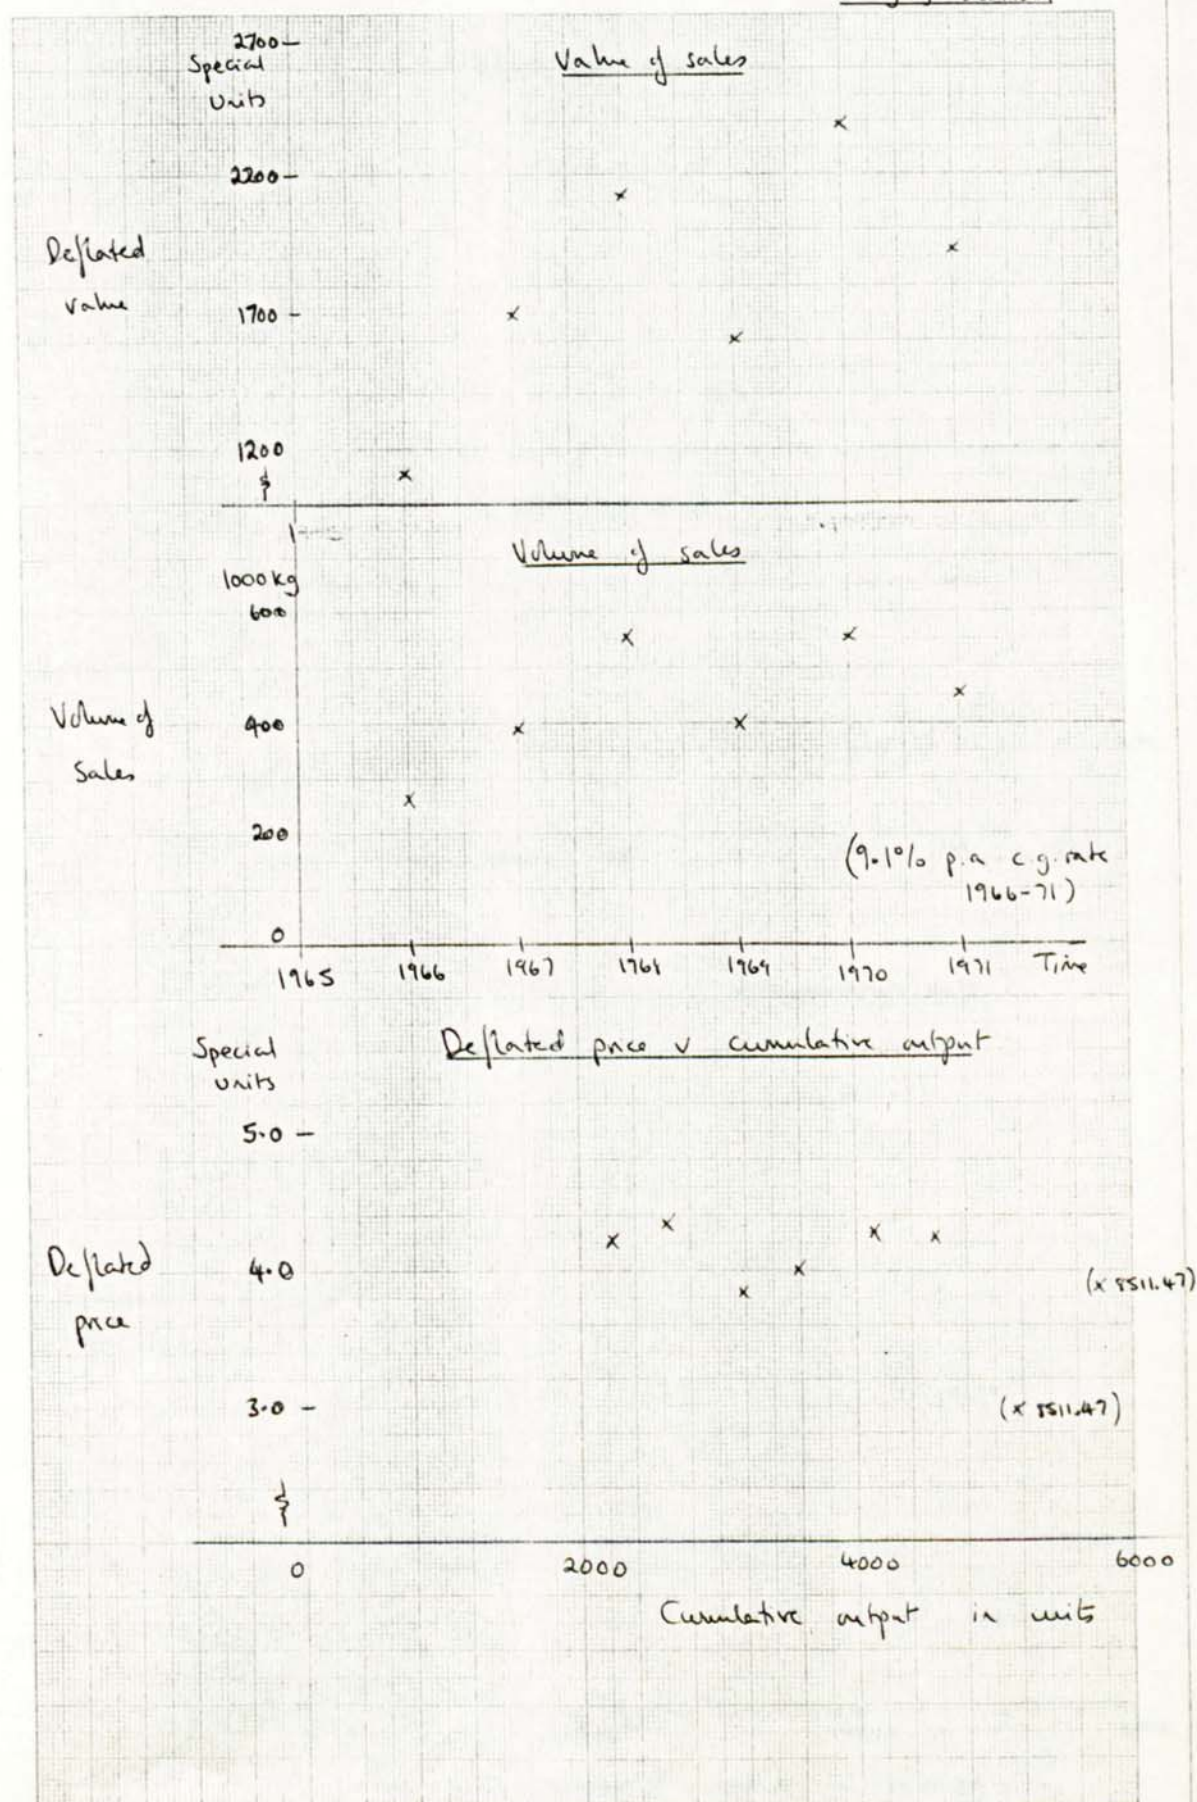 2700
Special
Units
Value of sales
2200
Deflated
value
1700
1200
Volume of sales
1000 kg
600
Volume of
Sales
400
200
(9.1% p.a c.g. rate
1966-71)
0
1965 1966 1967 1968 1969 1970 1971 Time
Special
units
Deflated price v cumulative output
5.0
Deflated
price
4.0
(x 8511.47)
3.0
(x 8511.47)
0 2000 4000 6000
Cumulative output in units